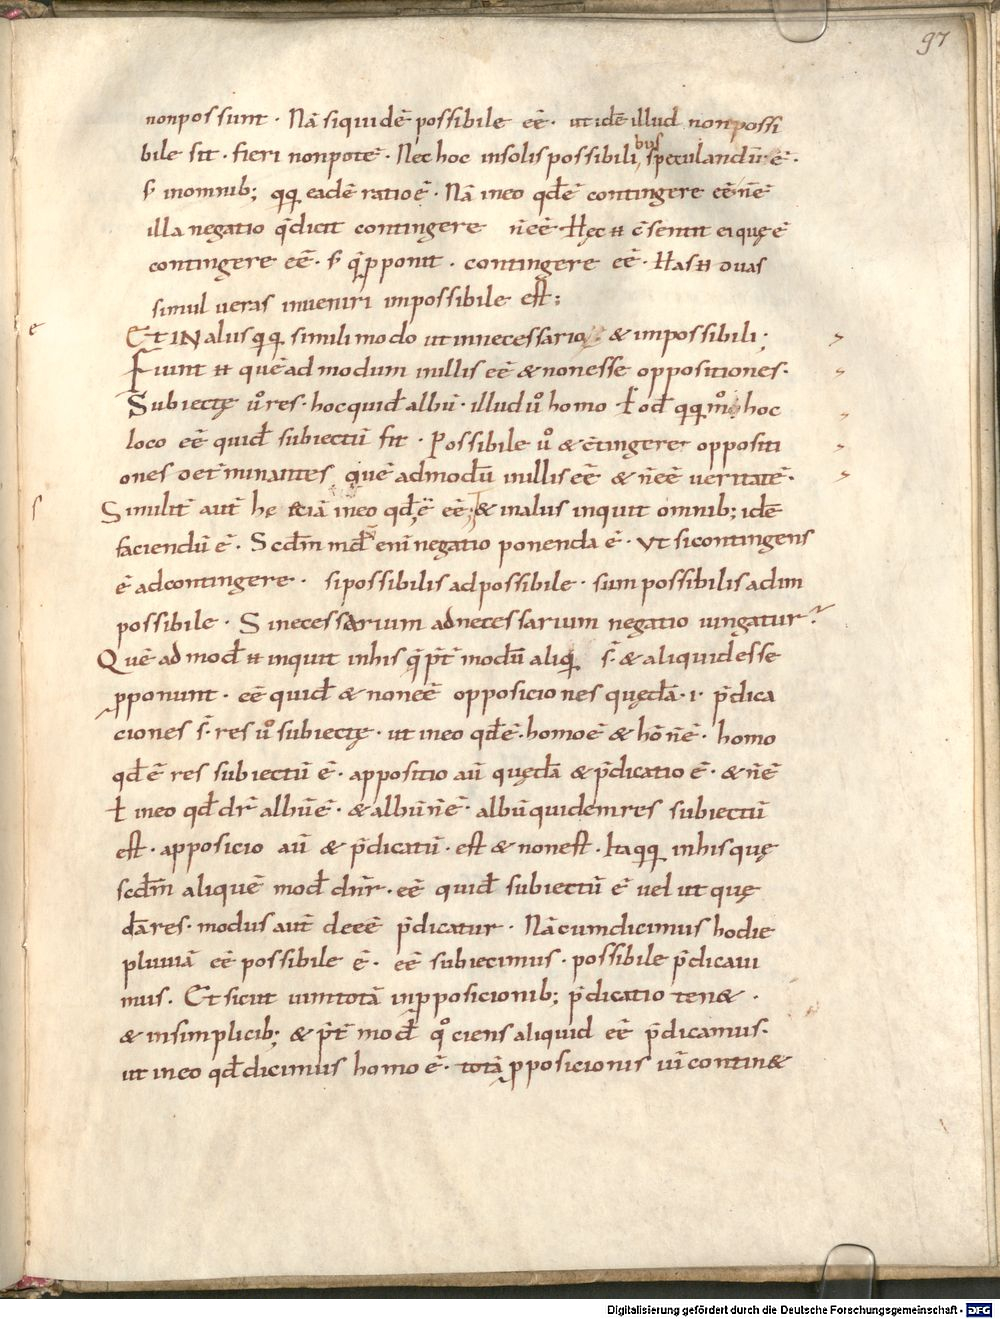 97
non possunt · Nā siquidē possibile eē · ut idē illud non possi
bile sit · fieri non potē · Nec hoc in solis possibilibus speculandū ē ·
s; in omnib; qq; eadē ratio ē · Nā in eo qđ ē contingere eē n̄ eē
illa negatio q̄ dicit contingere n̄ eē Hęc n̄ c̄sentit ei quę ē
contingere eē · s; q̄ p̱ponit · contingere eē · Has n̄ duas
simul veras inveniri impossibile est;
e
Et IN alus qq; simili modo ut in necessario · & impossibili ·
Fiunt n̄ quē ad modum in illis eē & non esse oppositiones ·
Subiectę ů res · hoc quid albū · illud ů homo ł od qq; mº hoc
loco eē quid subiectū fit · Possibile ů & c̄tingere oppositi
ones det̄minantes quē admodū in illis eē & n̄ eē veritatē ·
s
Similit̄ aut̄ hę etiā in eo qđ ē eē; & in alus inquit omnib; idē
faciendū ē · Scdm̄ mđ enī negatio ponenda ē · Ut si contingens
ē ad contingere · si possibilis ad possibile · sum possibilis ad im
possibile · Si necessarium ad necessarium negatio iungatur ·
Quē ad mođ n̄ inquit in his q̄ p̄t̄ modū aliq; s̄ & aliquid esse
p̱ponunt · eē quid & non eē opposiciones quędā · i · p̄dica
ciones s̄ · res ů subiectę · ut in eo qđ ē · homo ē & hō n̄ ē · homo
qđ ē res subiectū ē · appositio aū quędā & p̄dicatio ē · & n̄ ē
ł in eo qđ dr̄ albū ē · & albū n̄ ē · albū quidem res subiectū
est · apposicio aū & p̄dicatū · est & non est · Itaqq; in his quę
scdm̄ aliquē mođ dn̄r · eē quid subiectū ē vel ut quę
dā res · modus aut̄ de eē p̄dicatur · Nā cum dicimus hodie
pluviā eē possibile ē · eē subiecimus · possibile p̄dicavi
mus · Et sicut vim totā in p̱posicionib; p̄dicatio ten& ·
& in simplicib; & p̄t̄ mođ qº ciens aliquid eē p̄dicamus ·
ut in eo qđ dicimus homo ē · totā p̱posicionis vī contin&
Digitalisierung gefördert durch die Deutsche Forschungsgemeinschaft · DFG